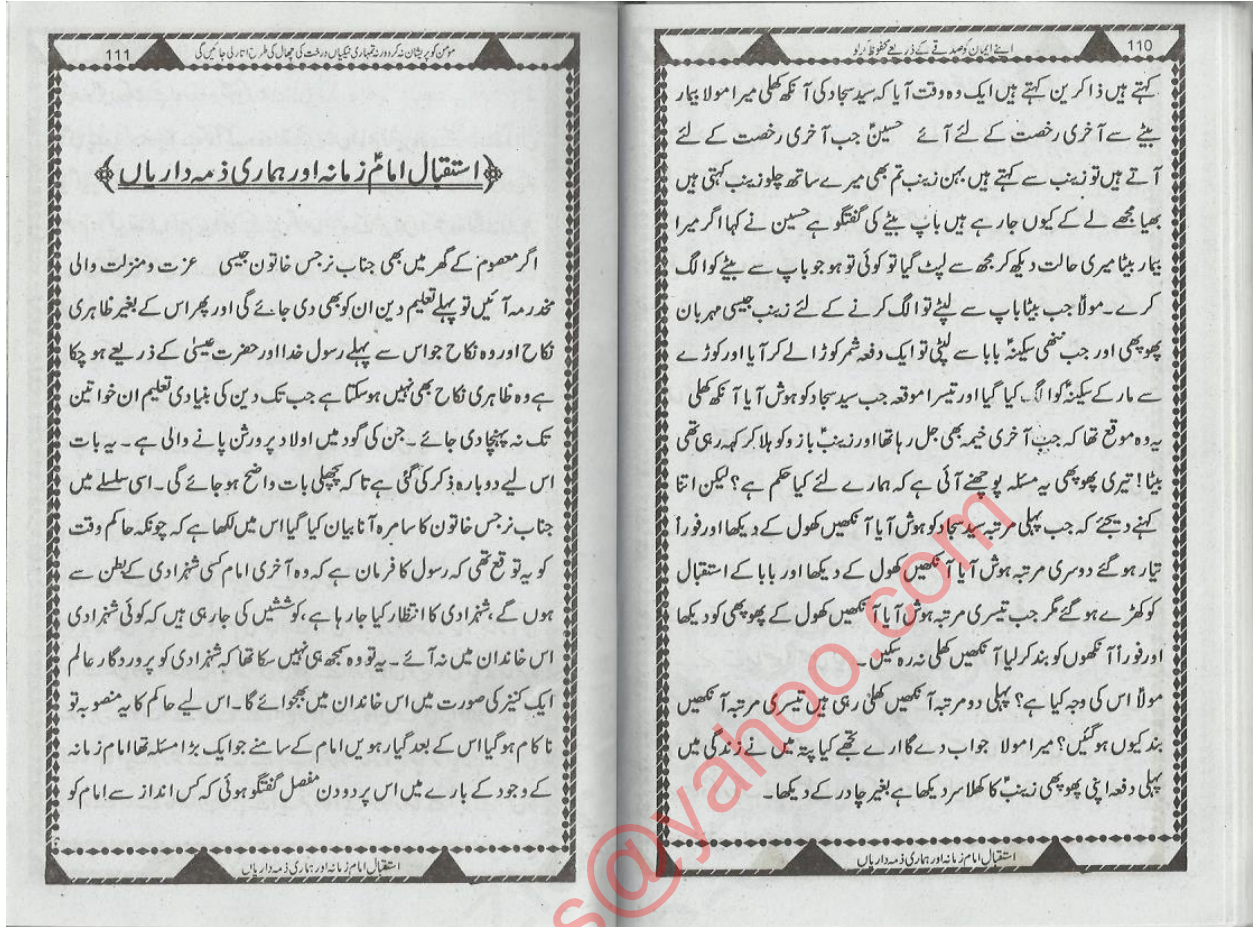 110
اپنے ایمان کو صدقے کے ذریعے محفوظ کر لو
کہتے ہیں ذاکرین کہتے ہیں ایک وہ وقت آیا کہ سید سجاد کی آنکھ کھلی میرا مولا بیمار
بیٹے سے آخری رخصت کے لئے آئے حسینؑ جب آخری رخصت کے لئے
آتے ہیں تو زینب سے کہتے ہیں بہن زینب تم بھی میرے ساتھ چلو زینب کہتی ہیں
بھیا مجھے لے کے کیوں جا رہے ہیں باپ بیٹے کی گفتگو ہے حسین نے کہا اگر میرا
بیمار بیٹا میری حالت دیکھ کر مجھ سے لپٹ گیا تو کوئی تو ہو جو باپ سے بیٹے کو الگ
کرے۔ مولاؑ جب بیٹا باپ سے لپٹے تو الگ کرنے کے لئے زینب جیسی مہربان
پھوپھی اور جب ننھی سکینہؑ بابا سے لپٹی تو ایک دفعہ شمر کوڑا لے کر آیا اور کوڑے
سے مار کے سکینہؑ کو الگ کیا گیا اور تیسرا موقعہ جب سید سجاد کو ہوش آیا آنکھ کھلی
یہ وہ موقع تھا کہ جب آخری خیمہ بھی جل رہا تھا اور زینبؑ بازو کو ہلا کر کہہ رہی تھی
بیٹا! تیری پھوپھی یہ مسئلہ پوچھنے آئی ہے کہ ہمارے لئے کیا حکم ہے؟ لیکن اتنا
کہنے دیجئے کہ جب پہلی مرتبہ سید سجاد کو ہوش آیا آنکھیں کھول کے دیکھا اور فوراً
تیار ہو گئے دوسری مرتبہ ہوش آیا آنکھیں کھول کے دیکھا اور بابا کے استقبال
کو کھڑے ہو گئے مگر جب تیسری مرتبہ ہوش آیا آنکھیں کھول کے پھوپھی کو دیکھا
اور فوراً آنکھوں کو بند کر لیا آنکھیں کھلی نہ رہ سکیں۔
مولاؑ اس کی وجہ کیا ہے؟ پہلی دو مرتبہ آنکھیں کھلی رہی ہیں تیسری مرتبہ آنکھیں
بند کیوں ہو گئیں؟ میرا مولا جواب دے گا ارے تجھے کیا پتہ میں نے زندگی میں
پہلی دفعہ اپنی پھوپھی زینبؑ کا کھلا سر دیکھا ہے بغیر چادر کے دیکھا۔
استقبال امام زمانہ اور ہماری ذمہ داریاں
111
مومن کو پریشان نہ کرو ورنہ تمہاری نیکیاں درخت کی چھال کی طرح اتار لی جائیں گی
﴿استقبال امامؑ زمانہ اور ہماری ذمہ داریاں﴾
اگر معصوم کے گھر میں بھی جناب نرجس خاتون جیسی عزت و منزلت والی
مخدرمہ آئیں تو پہلے تعلیم دین ان کو بھی دی جائے گی اور پھر اس کے بغیر ظاہری
نکاح اور وہ نکاح جو اس سے پہلے رسول خدا اور حضرت عیسیٰ کے ذریعے ہو چکا
ہے وہ ظاہری نکاح بھی نہیں ہو سکتا ہے جب تک دین کی بنیادی تعلیم ان خواتین
تک نہ پہنچا دی جائے۔ جن کی گود میں اولاد پرورش پانے والی ہے۔ یہ بات
اس لیے دوبارہ ذکر کی گئی ہے تاکہ پچھلی بات واضح ہو جائے گی۔ اسی سلسلے میں
جناب نرجس خاتون کا سامرہ آنا بیان کیا گیا اس میں لکھا ہے کہ چونکہ حاکم وقت
کو یہ توقع تھی کہ رسول کا فرمان ہے کہ وہ آخری امام کسی شہزادی کے بطن سے
ہوں گے، شہزادی کا انتظار کیا جا رہا ہے، کوششیں کی جا رہی ہیں کہ کوئی شہزادی
اس خاندان میں نہ آئے۔ یہ تو وہ سمجھ ہی نہیں سکا تھا کہ شہزادی کو پروردگار عالم
ایک کنیز کی صورت میں اس خاندان میں بھجوائے گا۔ اس لیے حاکم کا یہ منصوبہ تو
ناکام ہو گیا اس کے بعد گیارہویں امام کے سامنے جو ایک بڑا مسئلہ تھا امام زمانہ
کے وجود کے بارے میں اس پر دو دن مفصل گفتگو ہوئی کہ کس انداز سے امام کو
استقبال امام زمانہ اور ہماری ذمہ داریاں
s@yahoo.com